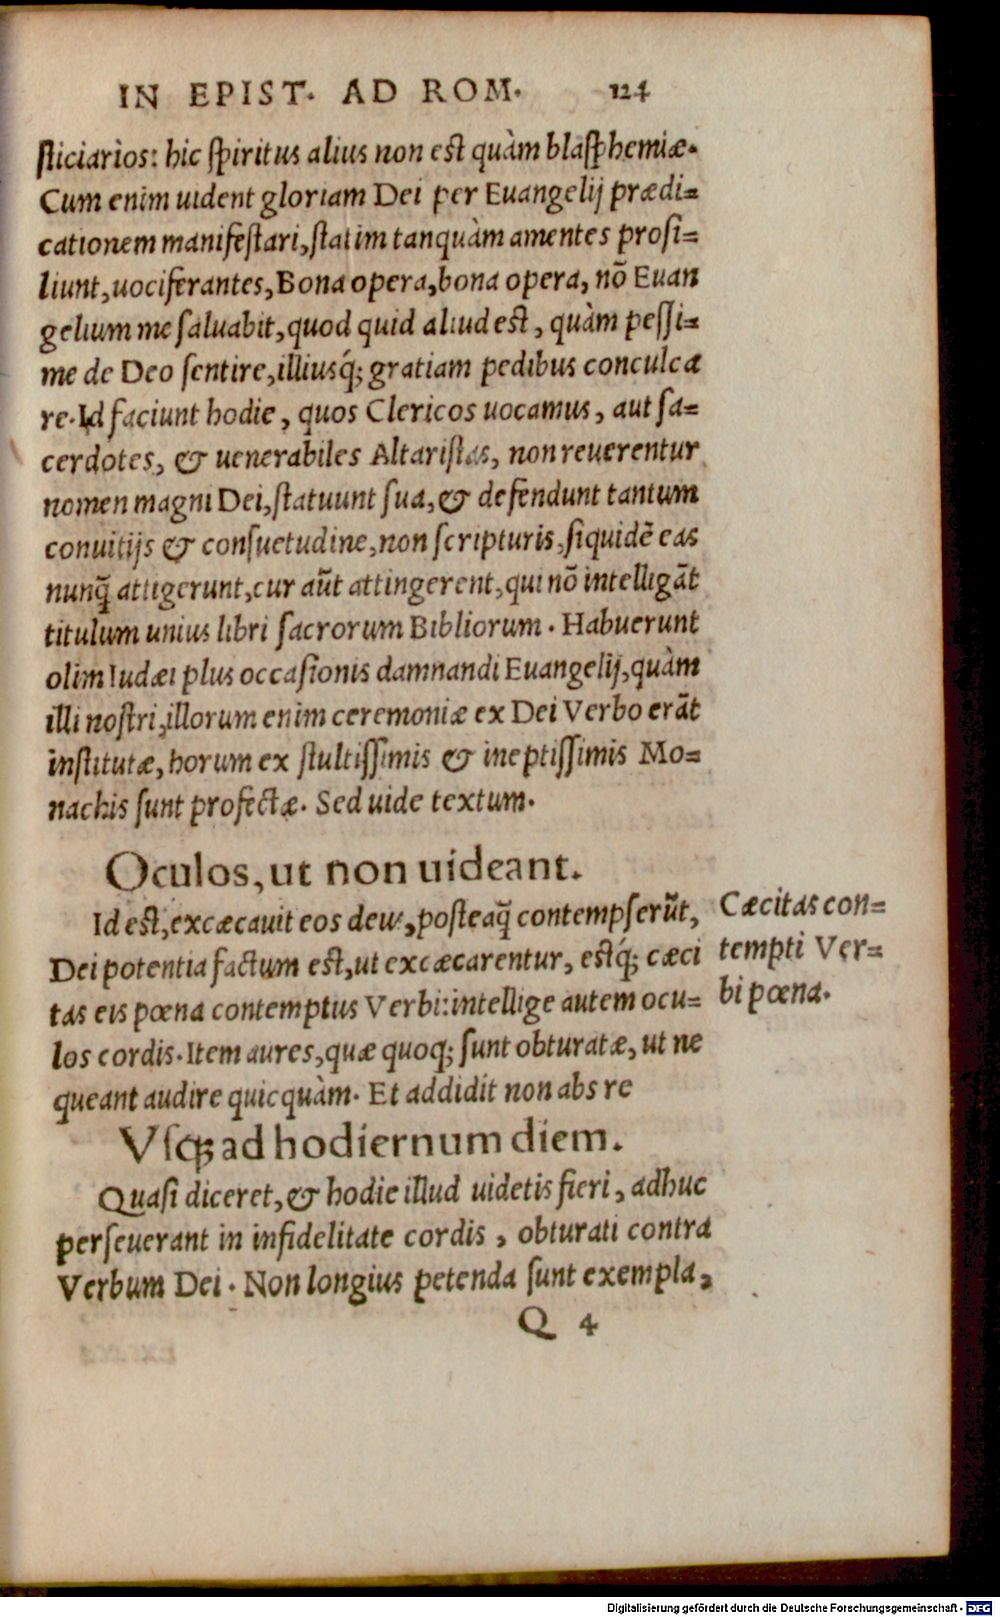 IN EPIST. AD ROM. 124
sticiarios: hic spiritus alius non est quàm blasphemiæ.
Cum enim uident gloriam Dei per Euangelij prædi=
cationem manifestari, statim tanquàm amentes prosi=
liunt, uociferantes, Bona opera, bona opera, nō Euan
gelium me saluabit, quod quid aliud est, quàm pessi=
me de Deo sentire, illiusq́; gratiam pedibus conculca
re. Id faciunt hodie, quos Clericos uocamus, aut sa=
cerdotes, & uenerabiles Altaristas, non reuerentur
nomen magni Dei, statuunt sua, & defendunt tantum
conuitijs & consuetudine, non scripturis, siquidē eas
nunq̄ attigerunt, cur aūt attingerent, qui nō intelligāt
titulum unius libri sacrorum Bibliorum. Habuerunt
olim Iudæi plus occasionis damnandi Euangelij, quàm
illi nostri, illorum enim ceremoniæ ex Dei Verbo erāt
institutæ, horum ex stultissimis & ineptissimis Mo=
nachis sunt profectæ. Sed uide textum.
Oculos, ut non uideant.
Id est, excæcauit eos deus, posteaq̄ contempserūt,
Dei potentia factum est, ut excæcarentur, estq́; cæci
tas eis pœna contemptus Verbi: intellige autem ocu=
los cordis. Item aures, quæ quoq; sunt obturatæ, ut ne
queant audire quicquàm. Et addidit non abs re
Cæcitas con=
tempti Ver=
bi pœna.
Vsq; ad hodiernum diem.
Quasi diceret, & hodie illud uidetis fieri, adhuc
perseuerant in infidelitate cordis, obturati contra
Verbum Dei. Non longius petenda sunt exempla,
Q 4
Digitalisierung gefördert durch die Deutsche Forschungsgemeinschaft - DFG